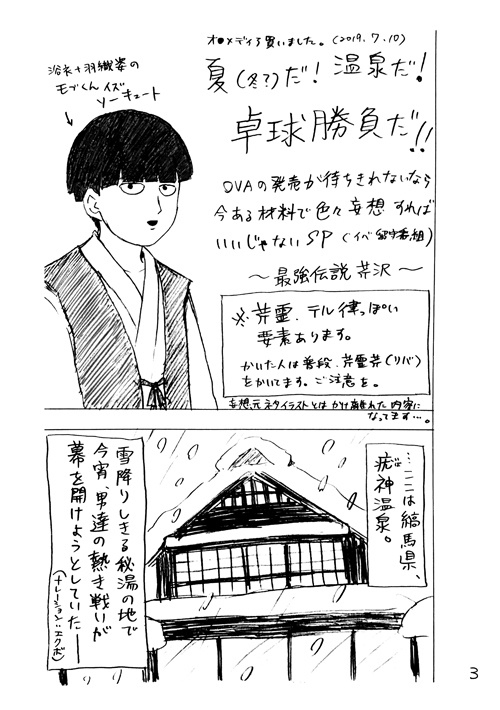 オ●メディア買いました。(2019.7.10)
夏(冬?)だ!温泉だ!
卓球勝負だ!!
浴衣+羽織姿の
モブくんイズ
ソーキュート
OVAの発売が待ちきれないなら
今ある材料で色々妄想すれば
いいじゃないSP(イベ留守番組)
〜最強伝説 芹沢〜
※芹霊、テル律っぽい
要素あります。
かいた人は普段、芹霊芹(リバ)
をかいてます。ご注意を。
妄想元ネタイラストとはかけ離れた内容に
なってます…。
…ここは縞馬県、
疣神温泉。
雪降りしきる秘湯の地で
今宵、男達の熱き戦いが
幕を開けようとしていた──
(ナレーション:エクボ)
3